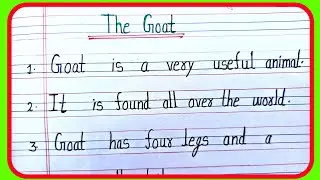 The Goat
1. Goat is a very useful animal.
2. It is found all over the world.
3. Goat has four legs and a